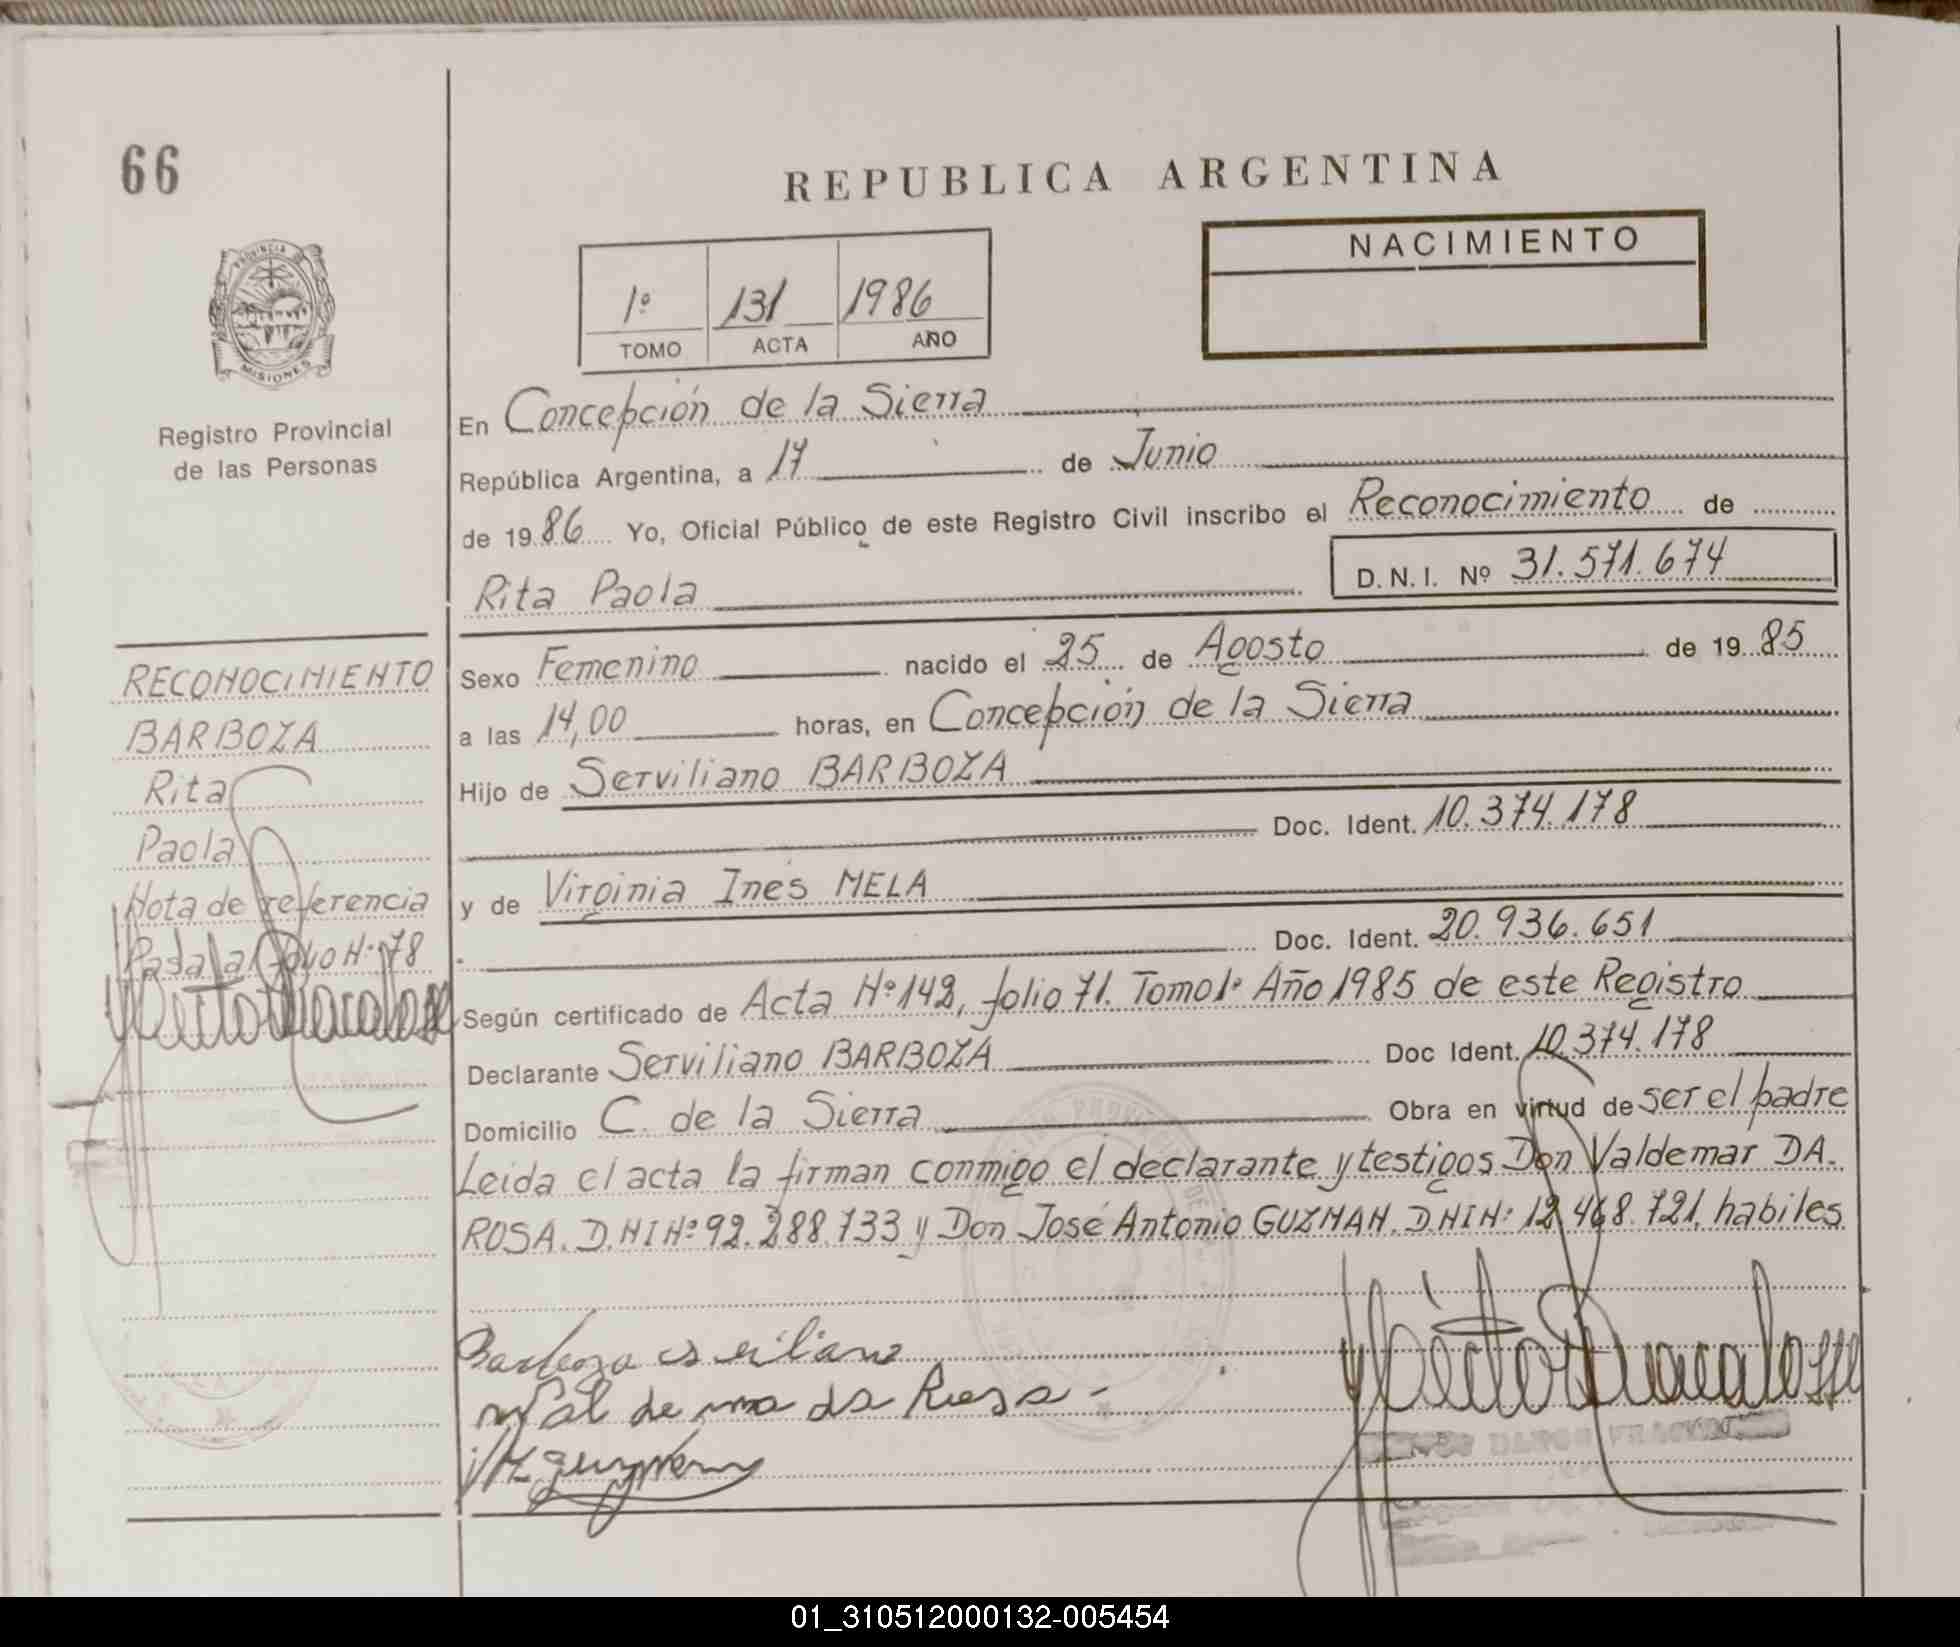 66
REPUBLICA ARGENTINA
NACIMIENTO
1º 131 1986
TOMO ACTA AÑO
PROVINCIA DE
MISIONES
Registro Provincial
de las Personas
En Concepción de la Sierra
República Argentina, a 17 de Junio
de 1986 Yo, Oficial Público de este Registro Civil inscribo el Reconocimiento de
Rita Paola D.N.I. Nº 31.571.674
RECONOCIMIENTO
BARBOZA
Rita
Paola
Nota de referencia
Pasa al folio Nº 78
Sexo Femenino nacido el 25 de Agosto de 1985
a las 14,00 horas, en Concepción de la Sierra
Hijo de Serviliano BARBOZA
Doc. Ident. 10.374.178
y de Virginia Inés MELA
Doc. Ident. 20.936.651
Según certificado de Acta Nº 142, folio 71. Tomo 1º Año 1985 de este Registro
Declarante Serviliano BARBOZA Doc Ident. 10.374.178
Domicilio C. de la Sierra Obra en virtud de ser el padre
Leida el acta la firman conmigo el declarante y testigos Don Valdemar DA
ROSA. D.N I Nº 92.288.733 y Don José Antonio GUZMAN. D N I Nº 12.468.721, habiles
01_310512000132-005454